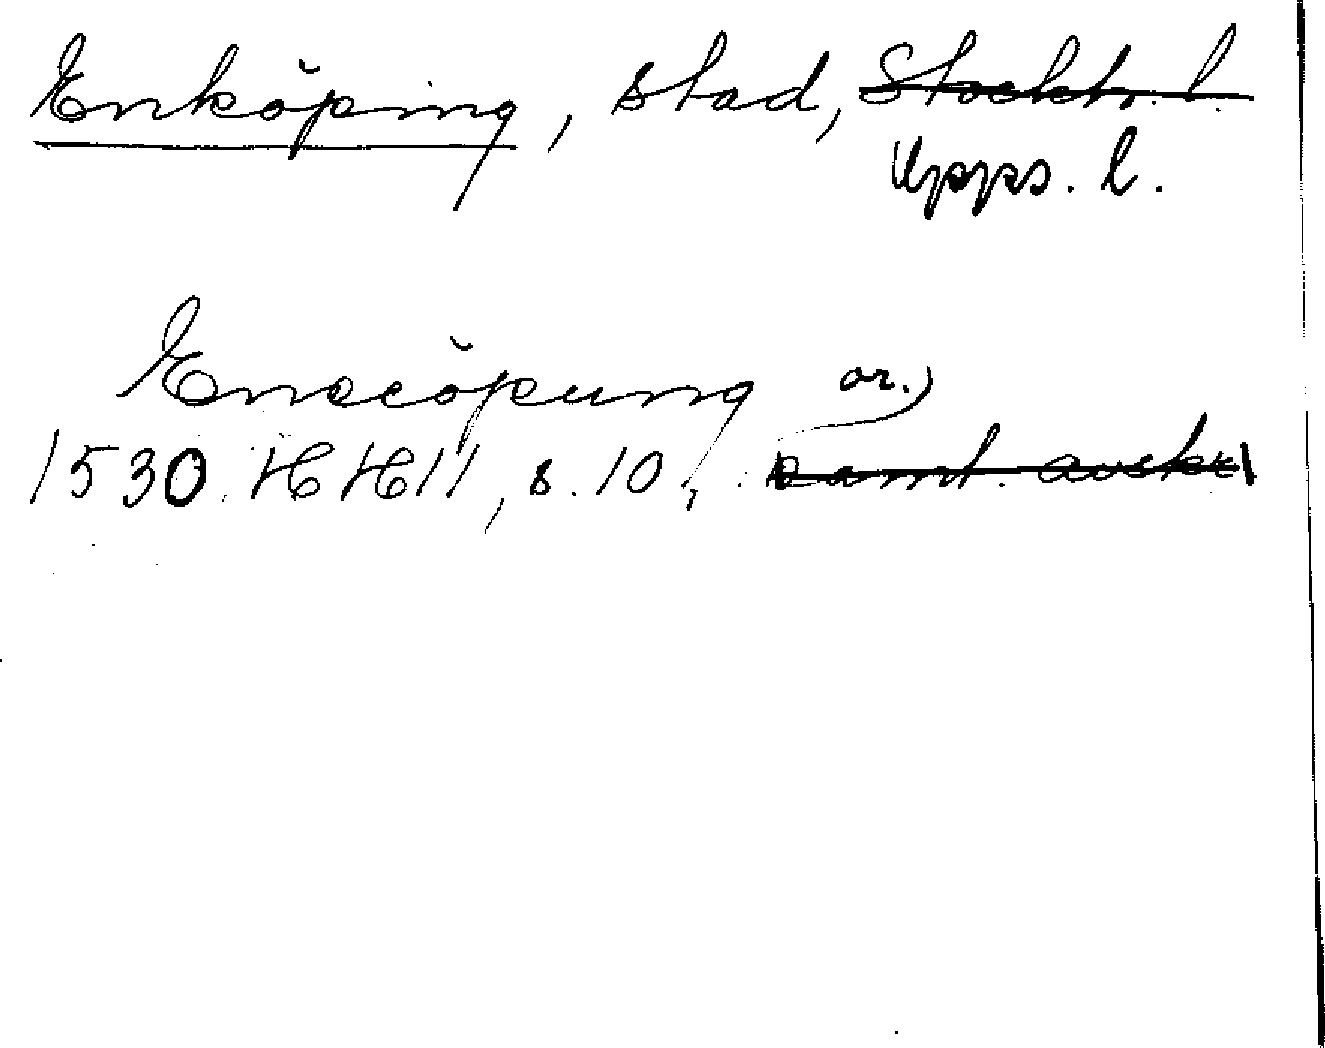 Enköping, stad, Stockh. l.
Upps. l.
Enecöpung or.)
1530 HH 11, s. 10, samt. avskr